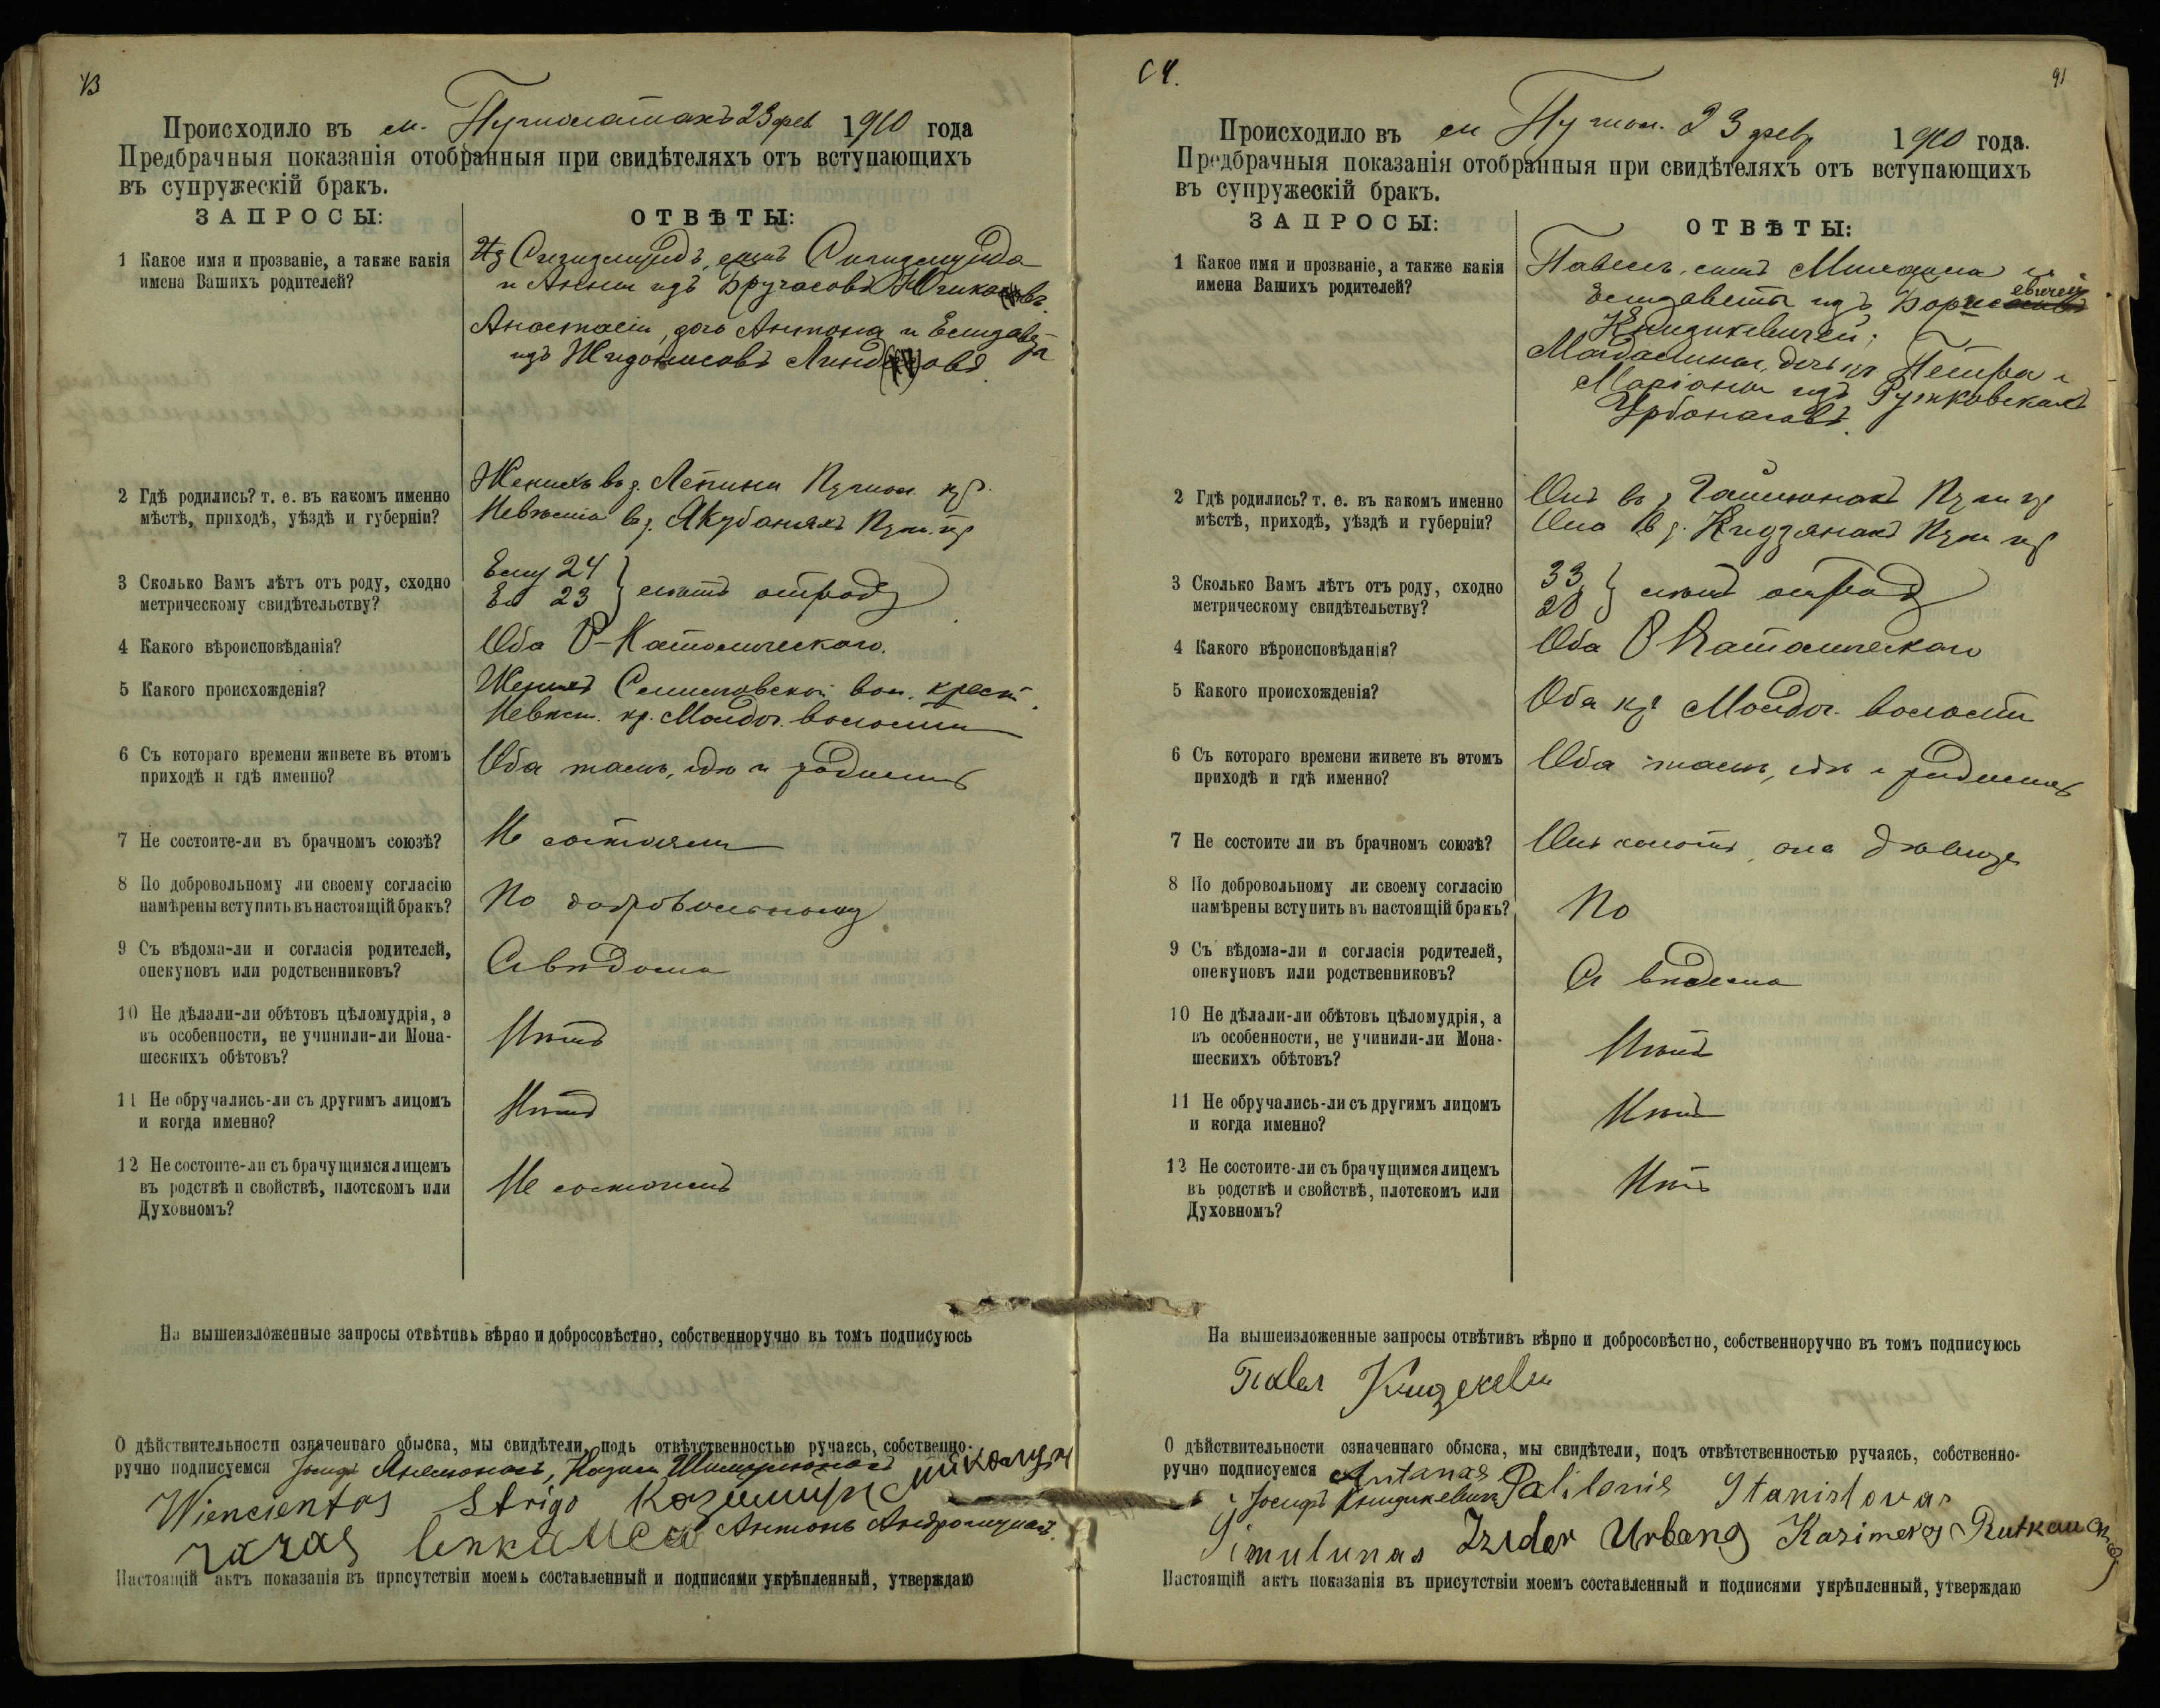 43
Происходило въ м. 23 фев 1910 года
Предбрачныя показанія отобранныя при свидѣтеляхъ отъ вступающихъ
въ супружескій бракъ.
ЗАПРОСЫ:
ОТВѢТЫ:
1 Какое имя и прозваніе, а также какія
имена Вашихъ родителей?
Сигизмундъ, сынъ Сигизмунда
и Анны изъ
Анастасія, дочь Антона и Елизаве-
изъ
2 Гдѣ родились? т. е. въ какомъ именно
мѣстѣ, приходѣ, уѣздѣ и губерніи?
Женихъ въ д. Лепини
Невѣста въ д. Якубанцахъ
3 Сколько Вамъ лѣтъ отъ роду, сходно
метрическому свидѣтельству?
Ему 24
Ей 23 } лѣтъ отъ роду
4 Какого вѣроисповѣданія?
Оба Р-Католическаго.
5 Какого происхожденія?
Женихъ вол. крест.
Невѣст. кр. волости
6 Съ котораго времени живете въ этомъ
приходѣ и гдѣ именно?
Оба тамъ, гдѣ и родились
7 Не состоите-ли въ брачномъ союзѣ?
Не состояли
8 По добровольному ли своему согласію
намѣрены вступить въ настоящій бракъ?
По добровольному
9 Съ вѣдома-ли и согласія родителей,
опекуновъ или родственниковъ?
Съ вѣдома
10 Не дѣлали-ли обѣтовъ цѣломудрія, а
въ особенности, не учинили-ли Мона-
шескихъ обѣтовъ?
Нѣтъ
11 Не обручались-ли съ другимъ лицомъ
и когда именно?
Нѣтъ
12 Не состоите-ли съ брачущимся лицемъ
въ родствѣ и свойствѣ, плотскомъ или
Духовномъ?
Не состоимъ
На вышеизложенные запросы отвѣтивъ вѣрно и добросовѣстно, собственноручно въ томъ подписуюсь
О дѣйствительности означеннаго обыска, мы свидѣтели, подъ отвѣтственностью ручаясь, собственно-
ручно подписуемся Казим.
Wiencientas Strigo
Антонъ
Настоящій актъ показанія въ присутствіи моемъ составленный и подписями укрѣпленный, утверждаю
91
Происходило въ м 23 февр 1910 года.
Предбрачныя показанія отобранныя при свидѣтеляхъ отъ вступающихъ
въ супружескій бракъ.
ЗАПРОСЫ:
ОТВѢТЫ:
1 Какое имя и прозваніе, а также какія
имена Вашихъ родителей?
Павелъ, сынъ Михаила и
Елизаветы изъ
Магдалина, дочь Петра и
Маріаны изъ Рутковскихъ
Урбонасовъ.
2 Гдѣ родились? т. е. въ какомъ именно
мѣстѣ, приходѣ, уѣздѣ и губерніи?
Онъ въ д.
Она въ д.
3 Сколько Вамъ лѣтъ отъ роду, сходно
метрическому свидѣтельству?
33
20 } лѣтъ отъ роду
4 Какого вѣроисповѣданія?
Оба Р Католическаго
5 Какого происхожденія?
Оба кр. волости
6 Съ котораго времени живете въ этомъ
приходѣ и гдѣ именно?
Оба тамъ, гдѣ и родились
7 Не состоите ли въ брачномъ союзѣ?
Онъ холостъ, она дѣвица
8 По добровольному ли своему согласію
намѣрены вступить въ настоящій бракъ?
По
9 Съ вѣдома-ли и согласія родителей,
опекуновъ или родственниковъ?
Съ вѣдома
10 Не дѣлали-ли обѣтовъ цѣломудрія, а
въ особенности, не учинили-ли Мона-
шескихъ обѣтовъ?
Нѣтъ
11 Не обручались-ли съ другимъ лицомъ
и когда именно?
Нѣтъ
12 Не состоите-ли съ брачущимся лицемъ
въ родствѣ и свойствѣ, плотскомъ или
Духовномъ?
Нѣтъ
На вышеизложенные запросы отвѣтивъ вѣрно и добросовѣстно, собственноручно въ томъ подписуюсь
О дѣйствительности означеннаго обыска, мы свидѣтели, подъ отвѣтственностью ручаясь, собственно-
ручно подписуемся Antanas Palilonis Stanislovas
Simulunas Izider Urbans Kazimeras
Настоящій актъ показанія въ присутствіи моемъ составленный и подписями укрѣпленный, утверждаю